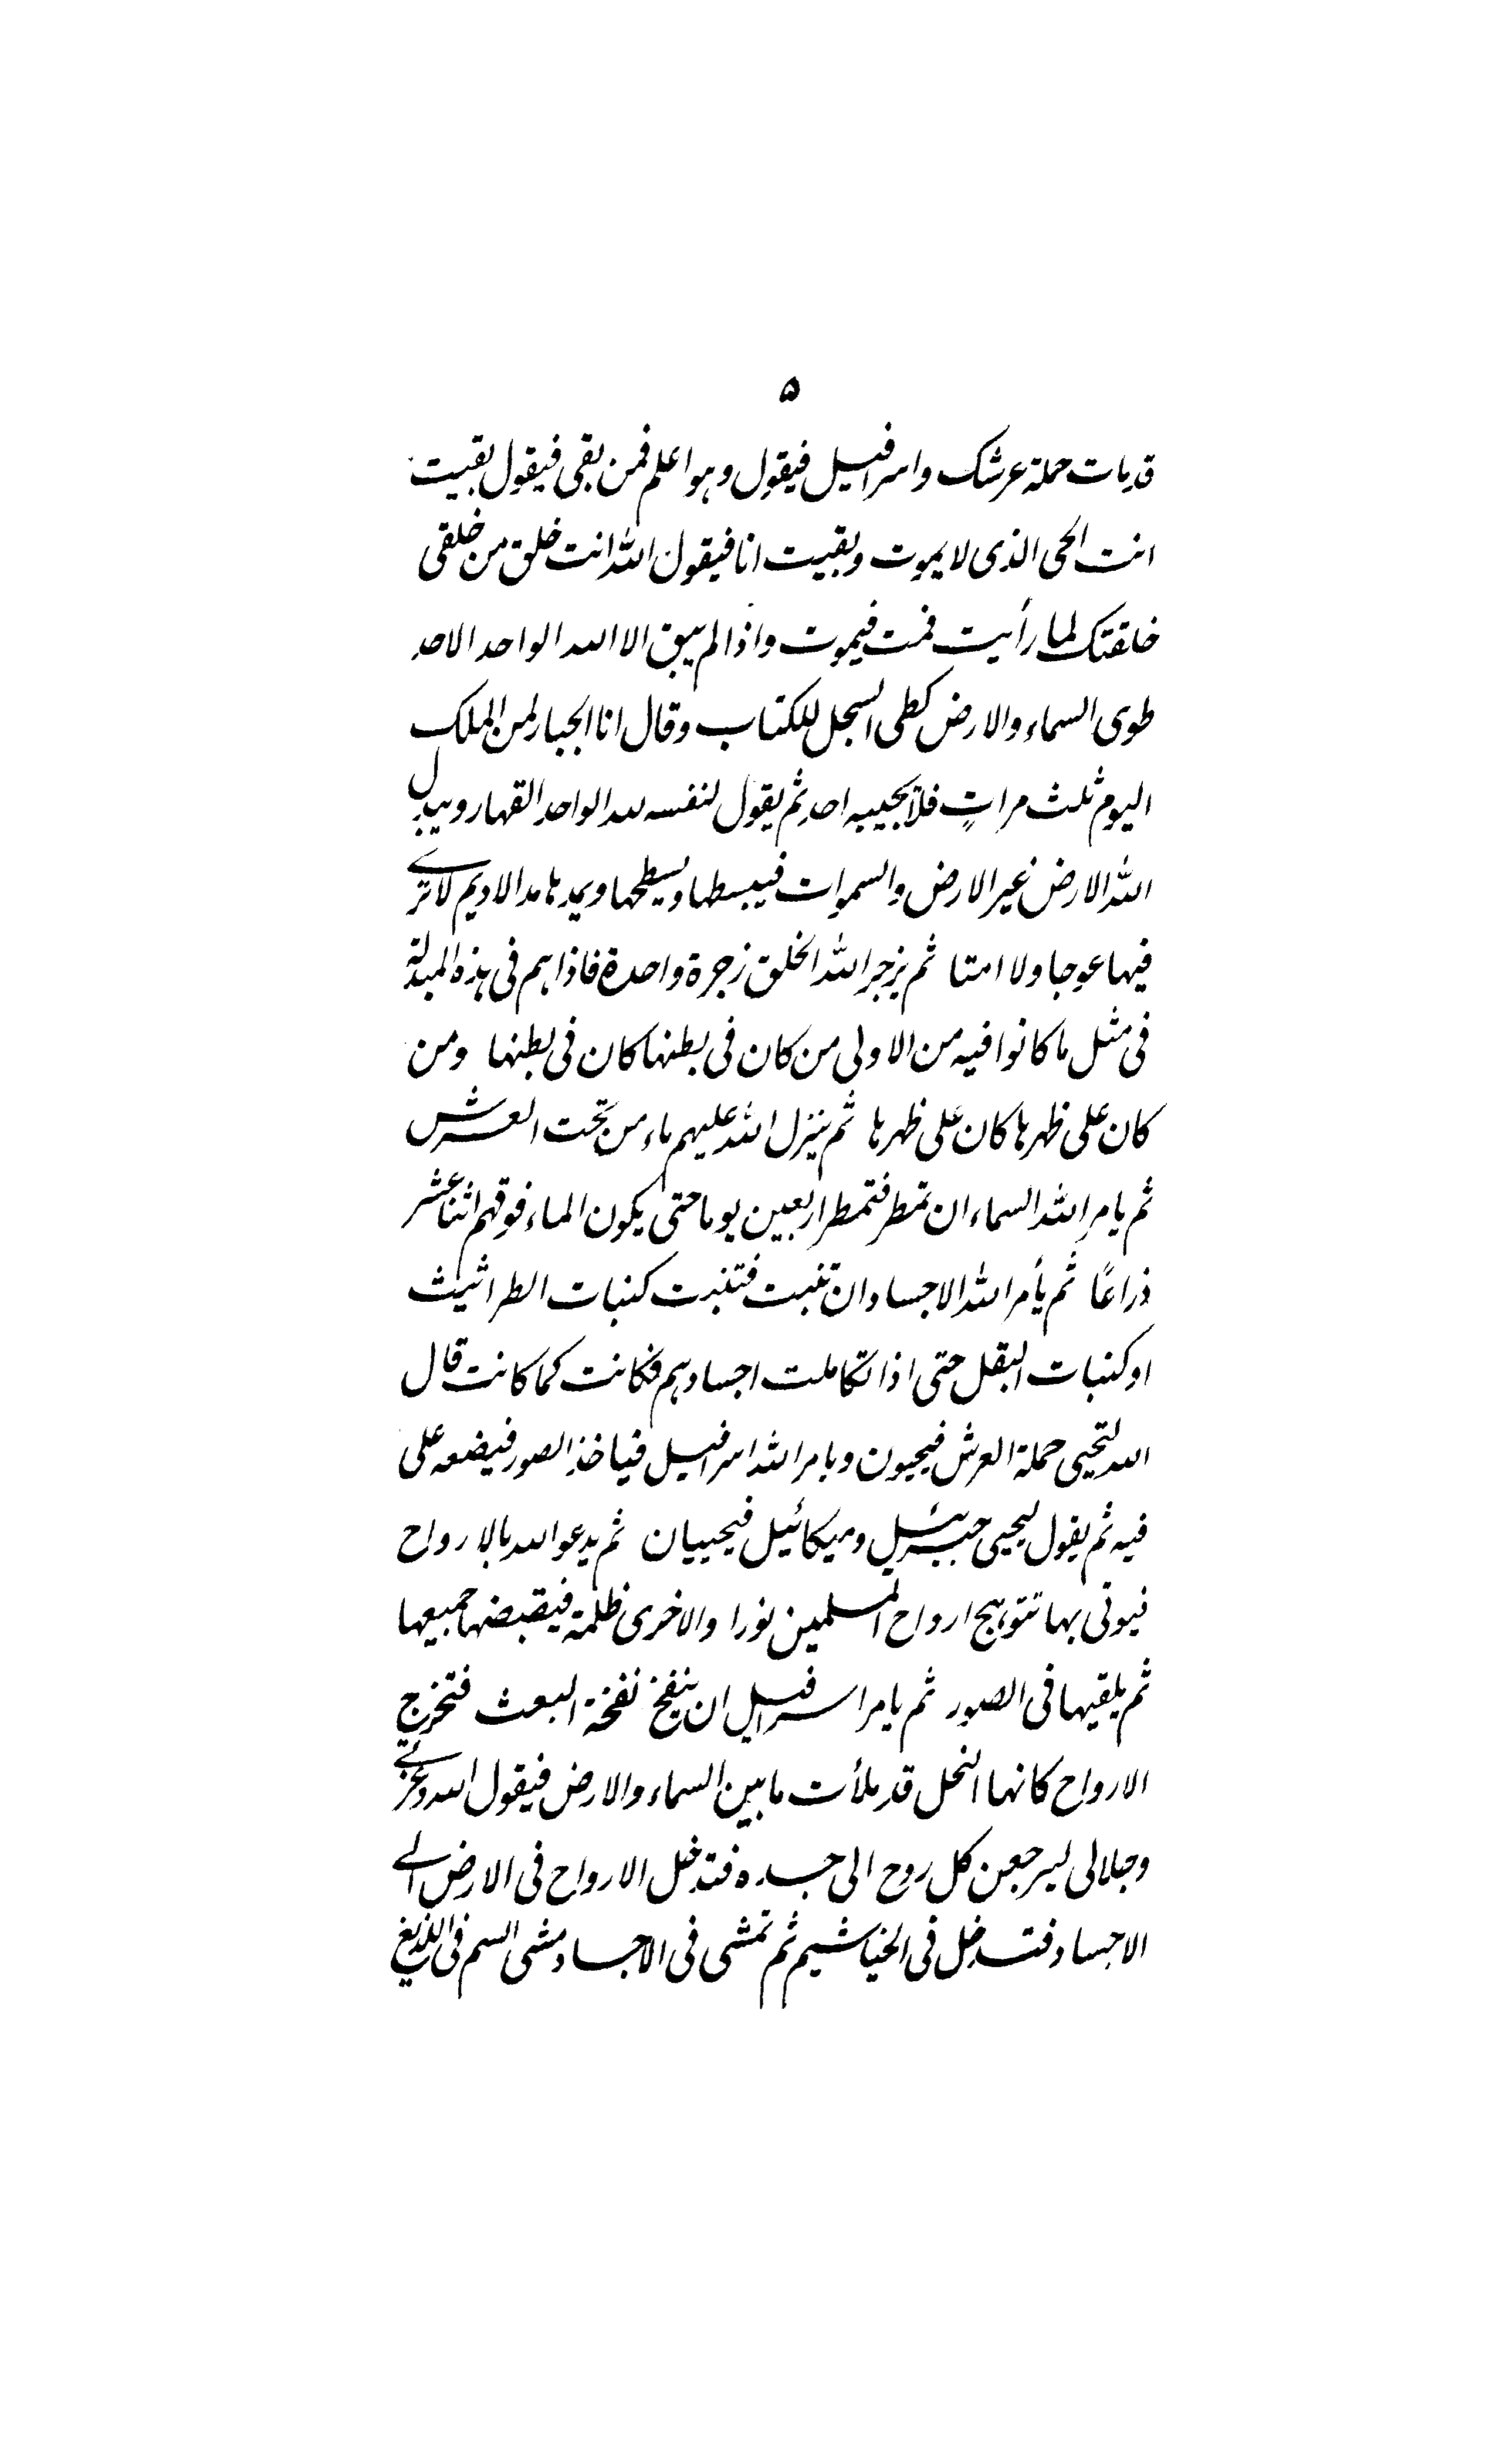 ۵
قد مات حملة عرشك واسرافيل فيقول وهو اعلم فمن بقى فيقول بقيت
انت الحى الذى لا يموت وبقيت انا فيقول الله انت خلق من خلقى
خلقتك لما رأيت فمت فيموت واذا لم يبق الا الله الواحد الاحد
طوى السماء والارض كطى السجل للكتاب وقال انا الجبار لمن الملك
اليوم ثلث مراتٍ فلا يجيبه احد ثم يقول لنفسه لله الواحد القهار ويبدل
الله الارض غير الارض والسموات فيبسطها ويسطحها ويمدها مد الاديم لا ترى
فيها عوجا ولا امتا ثم يزجر الله الخلق زجرة واحدة فاذا هم فى هذه المبدلة
فى مثل ما كانوا فيه من الاولى من كان فى بطنها كان فى بطنها ومن
كان على ظهرها كان على ظهرها ثم ينزل الله عليهم ماء من تحت العرش
ثم يامر الله السماء ان تمطر فتمطر اربعين يوما حتى يكون الماء فوقهم اثنا عشر
ذراعًا ثم يأمر الله الاجساد ان تنبت فتنبت كنبات الطراثيث
او كنبات البقل حتى اذا تكاملت اجسادهم فكانت كما كانت قال
الله لتحيى حملة العرش فيحيون ويامر الله اسرافيل فياخذ الصور فيضعه على
فيه ثم يقول ليحيى جبرئيل وميكائيل فيحييان ثم يدعو الله بالارواح
فيوتى بها تتوهج ارواح المسلمين نورا والاخرى ظلمة فيقبضها جميعها
ثم يلقيها فى الصور ثم يامر اسرافيل ان ينفخ نفخة البعث فتخرج
الارواح كانها النحل قد ملأت ما بين السماء والارض فيقول الله وعزتى
وجلالى ليرجعن كل روح الى جسده فتدخل الارواح فى الارض الى
الاجساد فتدخل فى الخياشيم ثم تمشى فى الاجساد مشى السم فى اللديغ